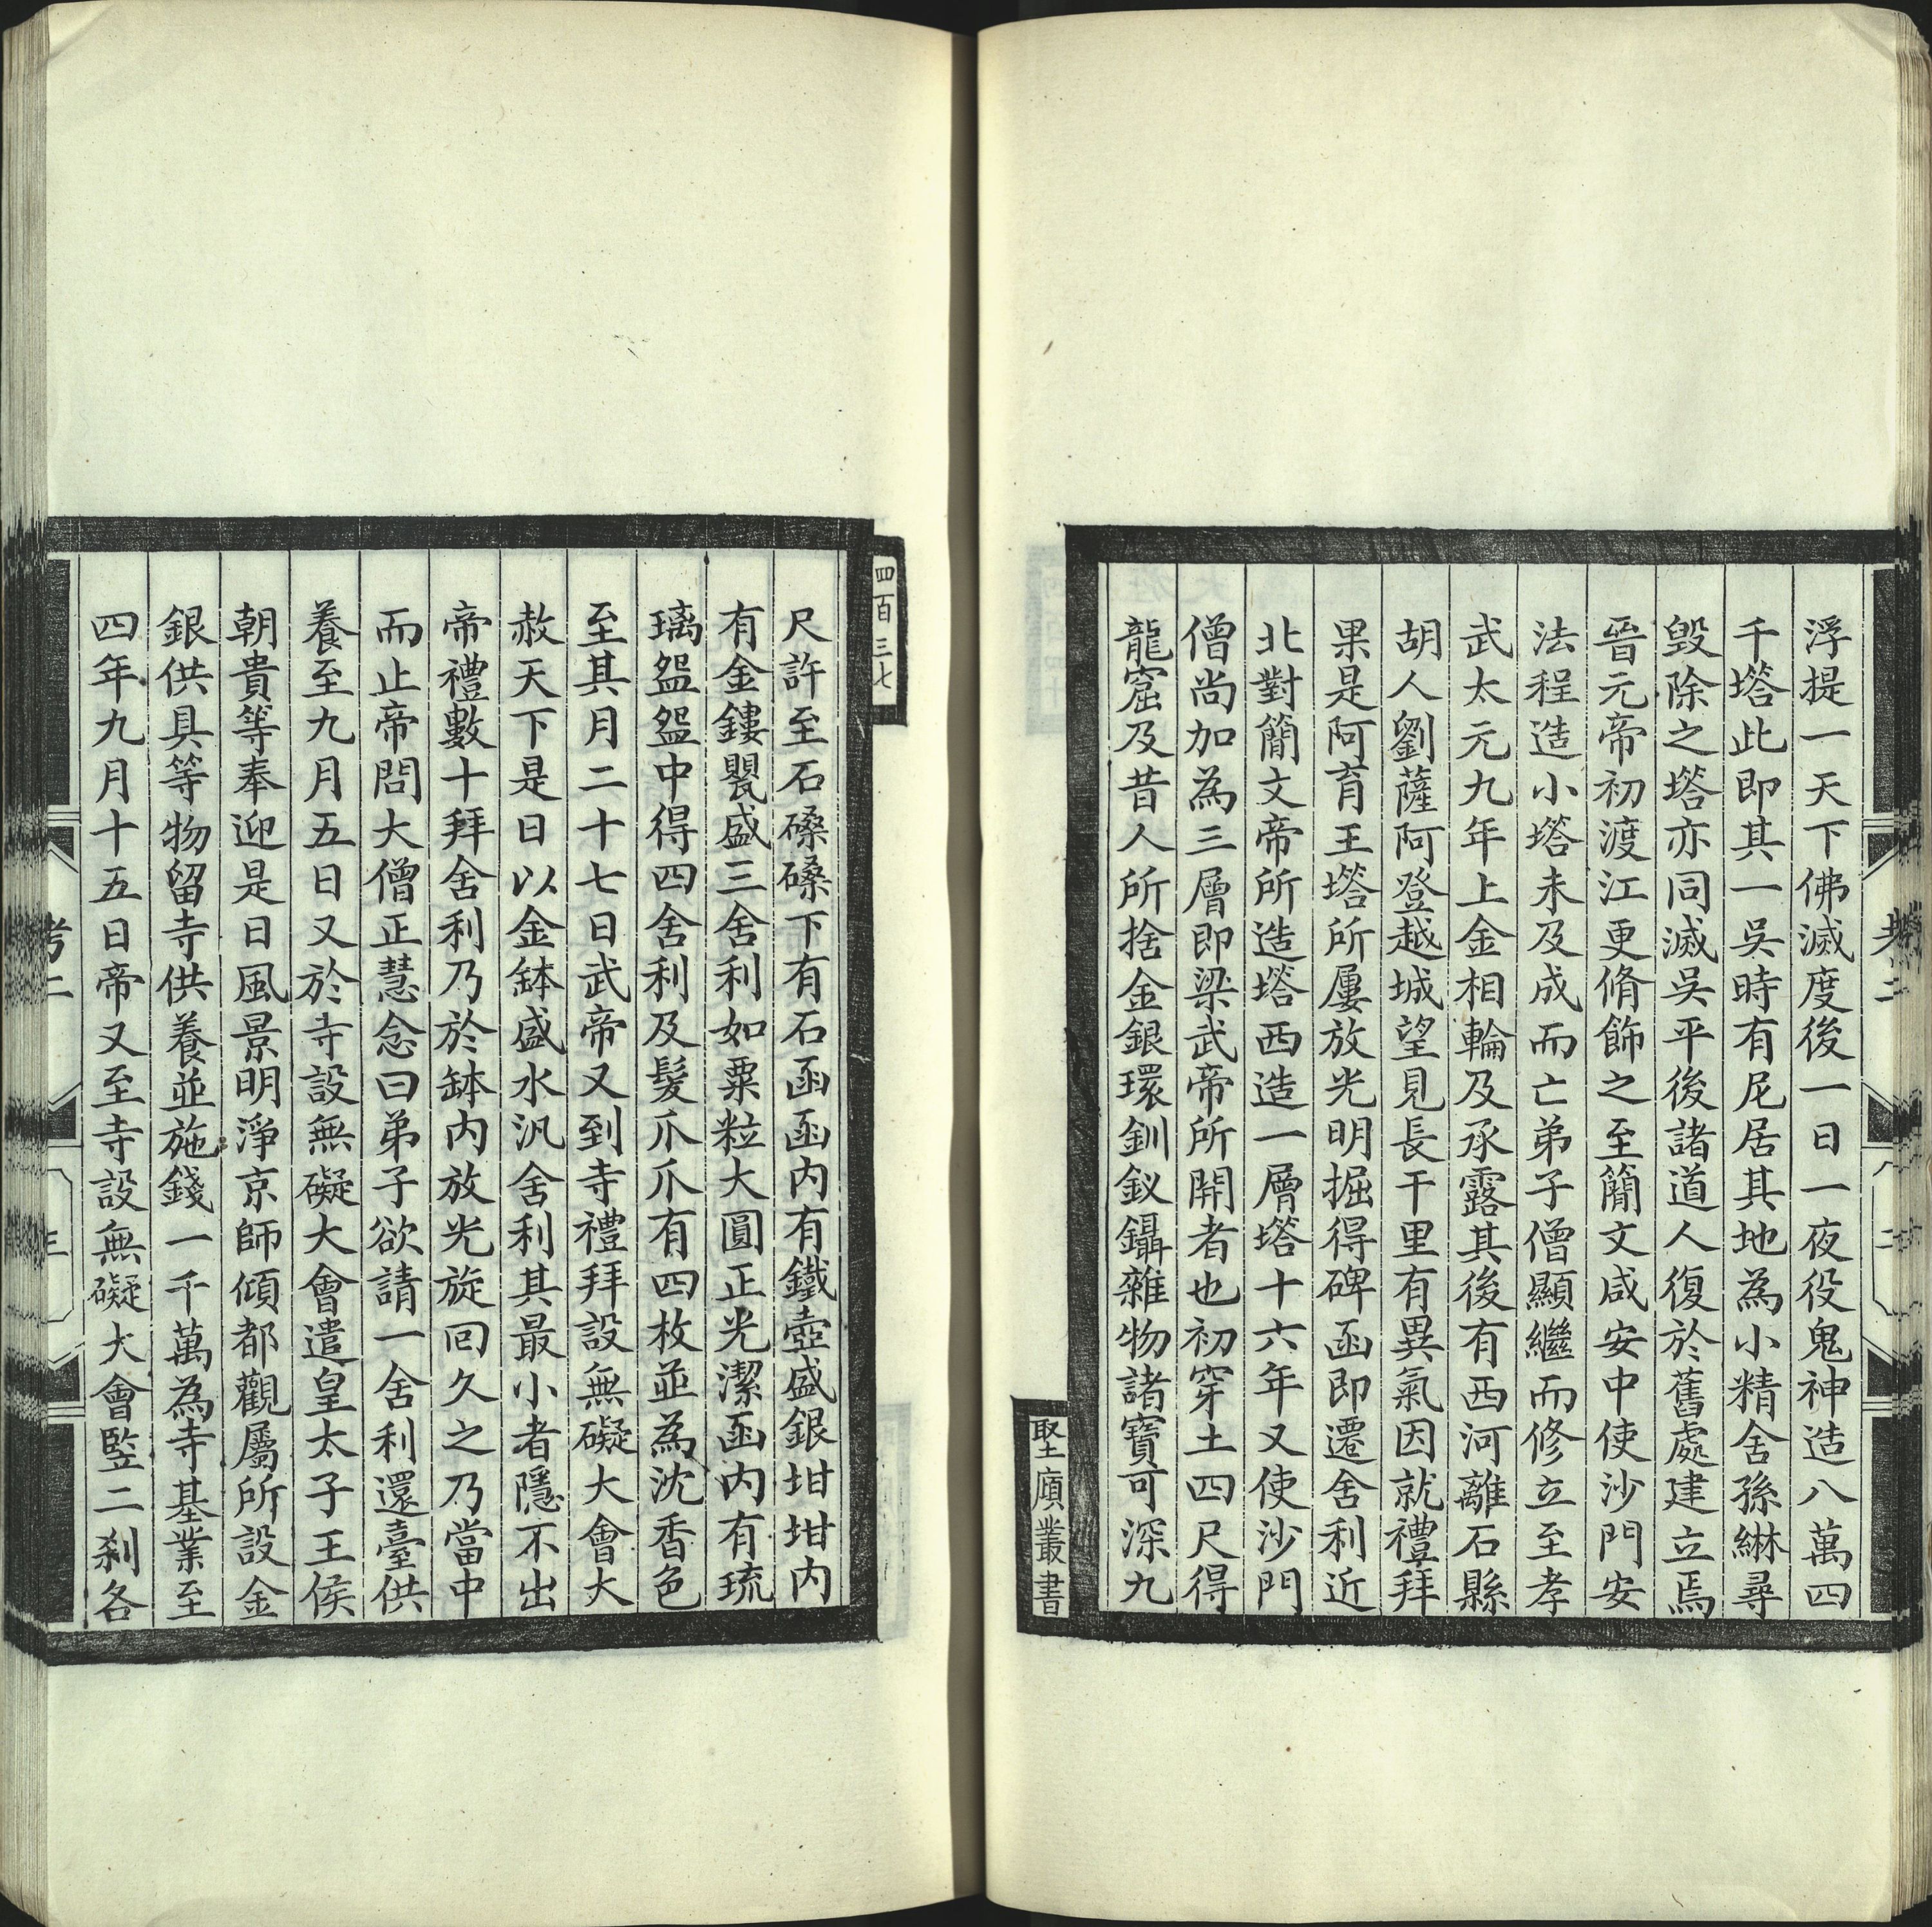 浮提一天下佛滅度後一日一夜役鬼神造八萬四
千塔此即其一吳時有尼居其地為小精舍孫綝尋
毀除之塔亦同滅吳平後諸道人復於舊處建立焉
晉元帝初渡江更脩飾之至簡文咸安中使沙門安
法程造小塔未及成而亡弟子僧顯繼而修立至孝
武太元九年上金相輪及承露其後有西河離石縣
胡人劉薩阿登越城望見長干里有異氣因就禮拜
果是阿育王塔所屢放光明掘得碑函即遷舍利近
北對簡文帝所造塔西造一層塔十六年又使沙門
僧尚加為三層即梁武帝所開者也初穿土四尺得
龍窟及昔人所捨金銀環釧釵鑷雜物諸寶可深九
聖廎叢書
四百三七
尺許至石磉磉下有石函函内有鐵壺盛銀坩坩内
有金鏤罌盛三舍利如粟粒大圓正光潔函内有琉
璃盌盌中得四舍利及髮爪爪有四枚並為沈香色
至其月二十七日武帝又到寺禮拜設無礙大會大
赦天下是日以金鉢盛水汎舍利其最小者隱不出
帝禮數十拜舍利乃於缽内放光旋回久之乃當中
而止帝問大僧正慧念曰弟子欲請一舍利還臺供
養至九月五日又於寺設無礙大會遣皇太子王侯
朝貴等奉迎是日風景明淨京師傾都觀屬所設金
銀供具等物留寺供養並施錢一千萬為寺基業至
四年九月十五日帝又至寺設無礙大會豎二剎各
考二